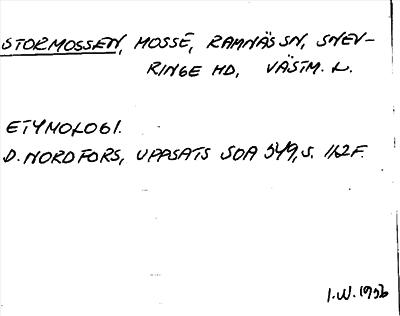 STORMOSSEN, MOSSE, RAMNÄS SN, SNEV-
RINGE HD, VÄSTM. L.
ETYMOLOGI.
D. NORDFORS, UPPSATS SOA 549, S. 112F.
I.W. 1956